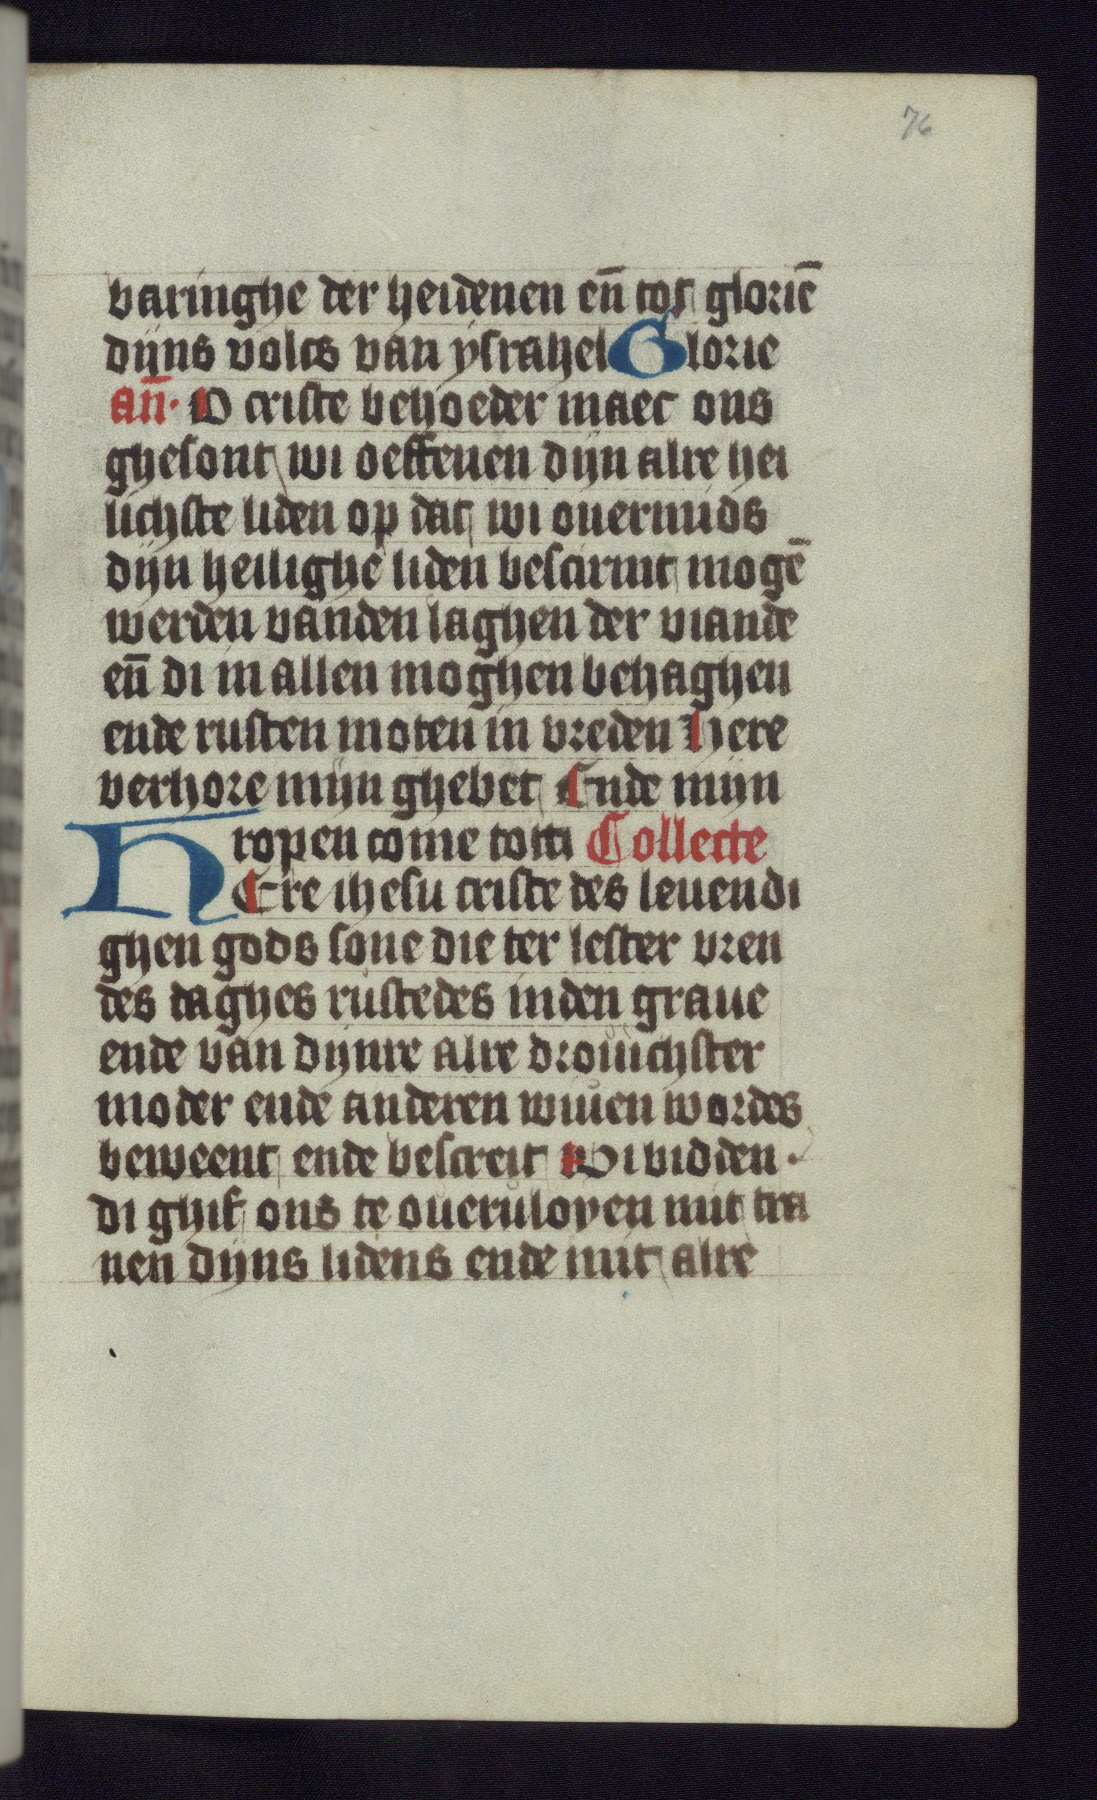 76
baringhe der heidenen en̄ tot glorie̅
dijns volcs van ysrahel Glorie
an̄· O criste behoeder maec ons
ghesont wi oeffenen dijn alre hei
lichste liden op dat wi ouermids
dijn heilighe liden bescirmt moge̅
werden vanden laghen der viande
en̄ di in allen moghen behaghen
ende rusten moten in vreden Here
verhore mijn ghebet Ende mijn
ropen come totti Collecte
HEre ihesu criste des leuendi
ghen gods sone die ter lester vren
des daghes rustedes inden graue
ende van dijnre alre drouichster
moder ende anderen wiuen wordes
beweent ende bescreit Wi bidden
di ghif ons te oueruloyen mit tra
nen dijns lidens ende mit alre